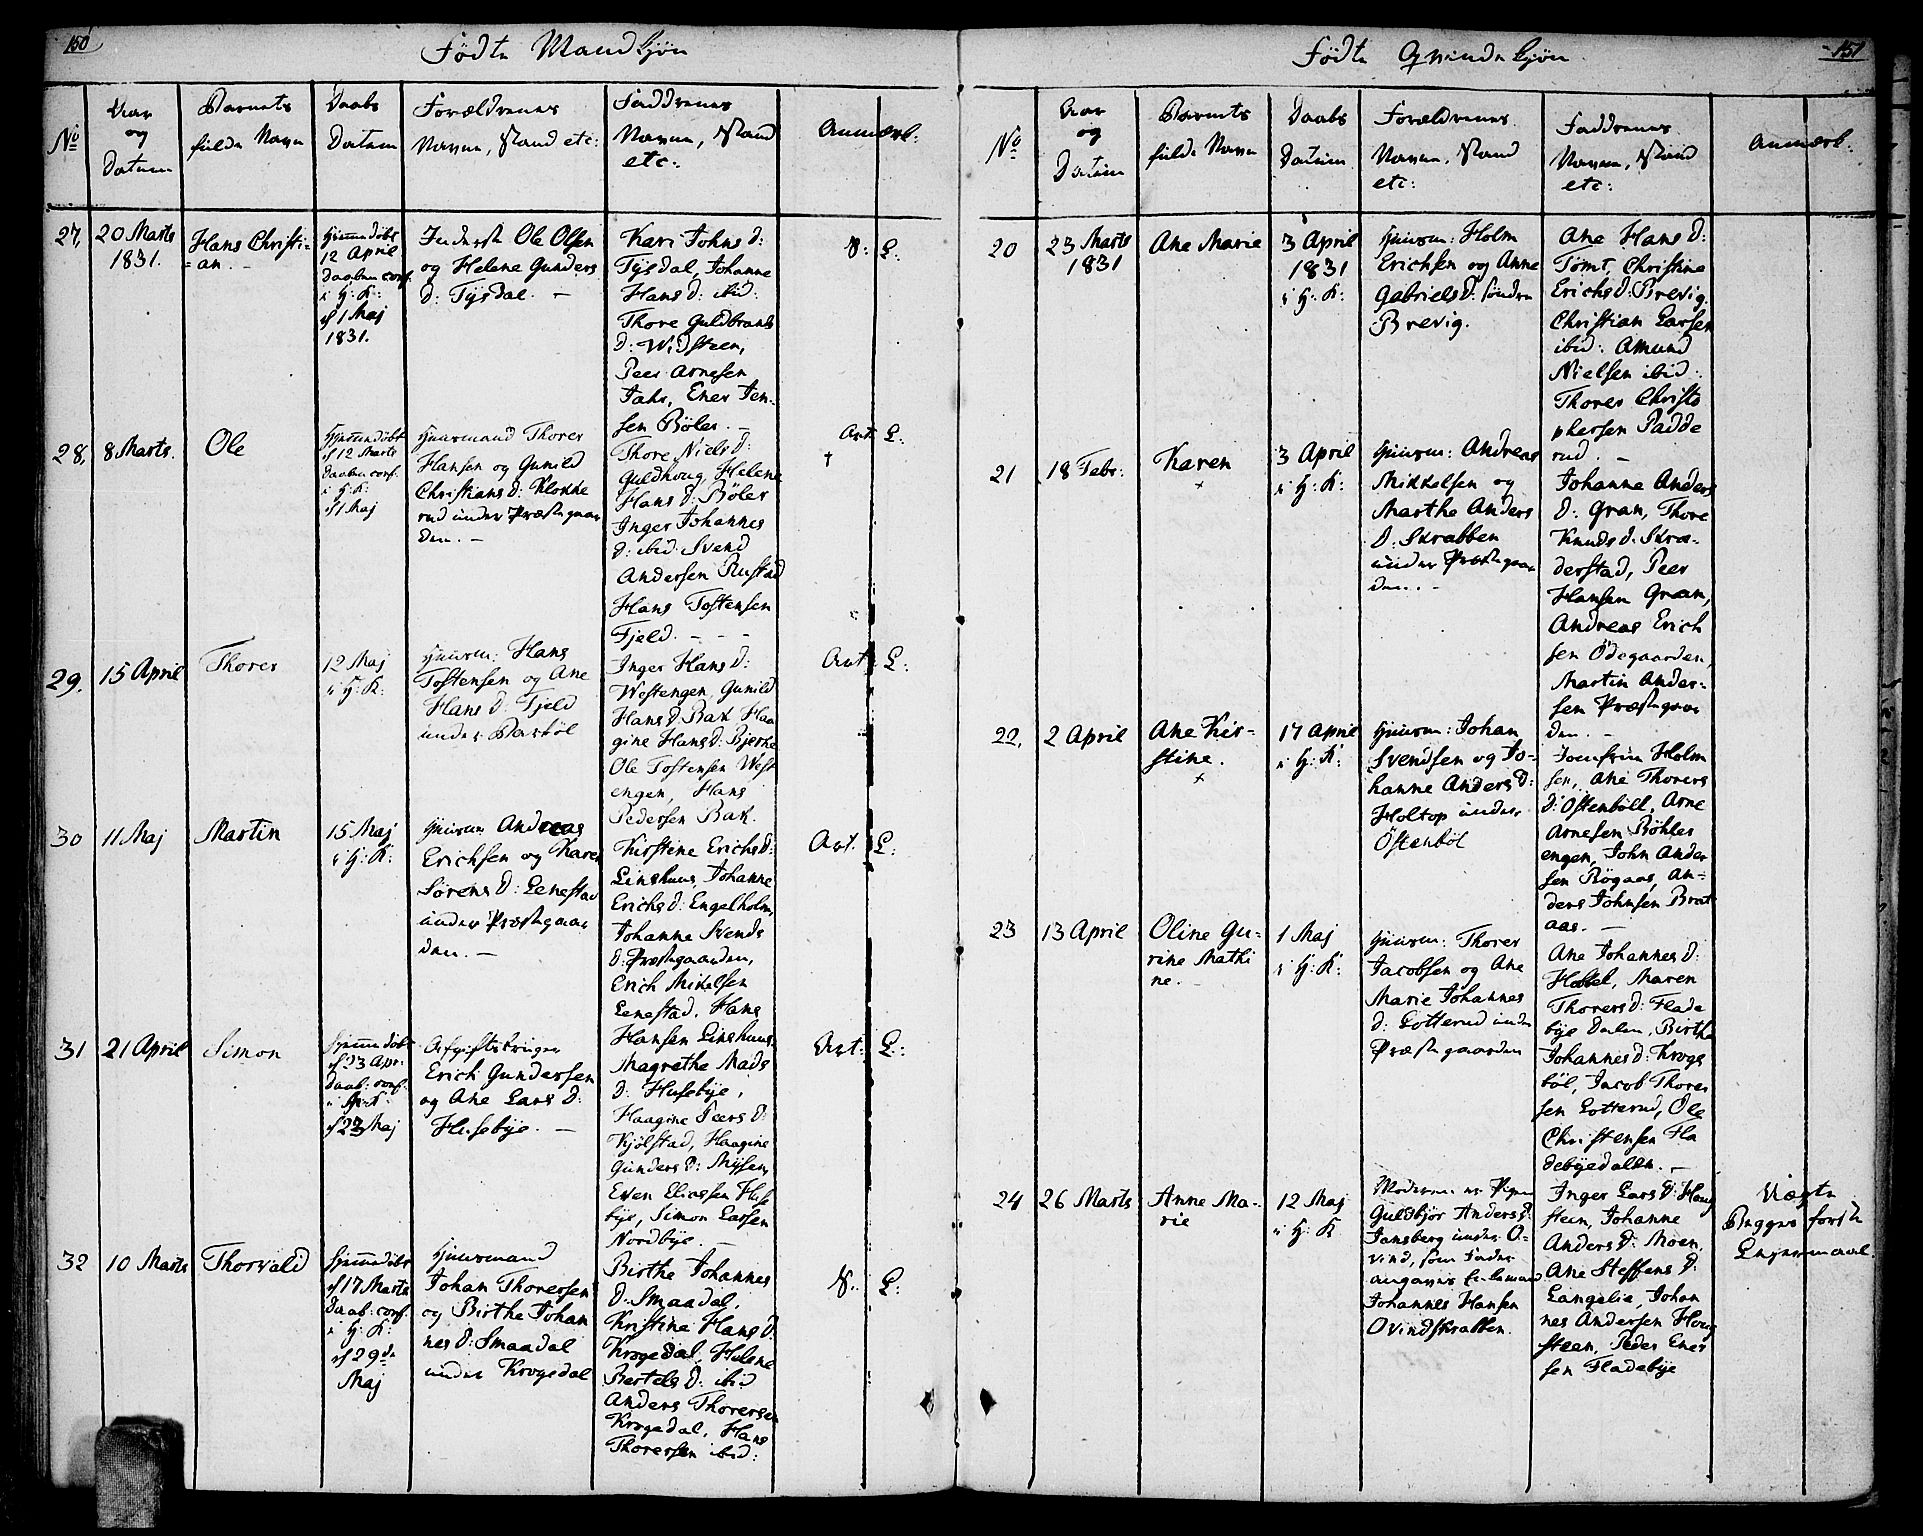 150
Fødte Mandkjøn
No
Aar
og
Datum
Barnets
fulde Navn
Daabs
Datum
Forældrenes
Navn, Stand etc:
Faddrenes
Navn, Stand
etc:
Anmærk:
27,
20 Marts
1831.
Hans Christi-
=an. -
Hjemmedøbt
12 April
Daaben conf.
i H: K:
d 1 Maj
1831.
Inderst Ole Olsen
og Helene Gunders
D: Tysdal. -
Kari Johns D:
Tysdal, Johanne
Hans D: ibid:
Thore Guldbrands
D: Widsteen,
Peer Arnesen
Jahr, Ener Jen-
sen Böler. -
V: L:
28,
8 Marts.
Ole
Hjemmedøbt
d 12 Marts
Daaben conf.
i H: K:
d 1 Maj
Huusmand Thorer
Hansen og Gunild
Christians D: Klokke
rud under Præstegaar
den. -
Thore Niels D:
Guldhoug, Helene
Hans D: Böler
Inger Johannes
D: ibid: Svend
Andersen Rustad
Hans Tostensen
Fjeld. - - -
Art: L:
†
29.
15 April
Thorer
12 Maj
i H: K:
Huusm: Hans
Tostensen og Ane
Hans D: Fjeld
under Barböl
Inger Hans D:
Westengen, Gunild
Hans D: Bak Haa
gine Hans D: Bjerke
Ole Tostensen West
engen, Hans
Pedersen Bak.
Art: L:
30
11 Maj
Martin
15 Maj
i H: K:
Huusm: Andreas
Erichsen og Karen
Sørens D: Lenestad
under Præstegaar
den. -
Kirstine Erichs D:
Linshuus, Johanne
Erichs D: Engelholm,
Johanne Svends
D: Præstegaarden,
Erich Mikelsen
Lenestad, Hans
Hansen Linshuus.
Art. L:
31
21 April
Simon
Hjemmedøbt
d 23 Apr:
Daab: conf.
d 23 Maj
Afgiftsbruger
Erich Gundersen
og Ane Lars D:
Husebye. -
Magrethe Mads
D: Husebye,
Haagine Peers D:
Kjölstad, Haagine
Gunders D: Mysen,
Even Eliassen Huse
bye, Simon Larsen
Nordbye. -
Art: L:
32
10 Marts
Thorvald
Hjemmedøbt
d 17 Marts
Daab: conf.
i H: K:
d 29de
Maj
Huusmand
Johan Thoresen
og Birthe Johan
nes D: Smaadal
under Krogedal
Birthe Johannes
D: Smaadal,
Kristine Hans D:
Krogedal, Helene
Bertels D: ibid
Anders Thorersen
Krogedal, Hans
Thorersen ibid:
V: L:
151
Fødte Qvindekjøn
No
Aar
og
Datum
Barnets
fulde Navn
Daabs
Datum
Forældrenes
Navn, Stand
etc:
Faddrenes
Navn, Stand
etc:
Anmærk:
20
23 Marts
1831
Ane Marie
3 April
1831
i H: K:
Huusm: Holm
Erichsen og Anne
Gabriels D: søndre
Brevig.
Ane Hans D:
Tomt, Christine
Erichs D: Brevig,
Christian Larsen
ibid: Amund
Nielsen ibid:
Thorer Christo
phersen Padde
rud. -
21
18 Febr:
Karen
+
3 April
i H: K:
Huusm: Andreas
Mikkelsen og
Marthe Anders
D: Skrabben
under Præstegaar
den. -
Johanne Anders
D: Gran, Thore
Knuds D: Skra-
derstad, Peer
Hansen Gran,
Andreas Erich
sen Ödegaarden,
Martin Ander-
sen Præstegaar
den. -
22,
2 April
Ane Kir-
stine.
+
17 April
i H: K:
Huusm: Johan
Svendsen og Jo-
hanne Anders D:
Holtop under
Östenböl
Jomfrue Holm
sen, Ane Thorers
D: Ostenböll, Arne
Arnesen Böhler
engen, John Ander
sen Rögaas, An-
ders Johnsen Brat
aas. -
23
13 April
Oline Gu-
rine Mathi
ne. -
1 Maj
i H: K:
Huusm: Thorer
Jacobsen og Ane
Marie Johannes
D: Lotterud under
Præstegaarden
Ane Johannes D:
Hobbel, Maren
Thorers D: Flade
bye dalen, Birthe
Johannes D: Krogs
böl, Jacob Thorer
sen Lotterud, Ole
Christensen Fla
debyedalen. -
24
26 Marts
Anne Ma-
rie
12 Maj
i H: K
Moderen er Pigen
Guldbjör Anders D:
Jansberg under O-
vind, som Fader
angaves Enkemand
Johannes Hansen
Ovindskrabben.
Inger Lars D: Houg
steen, Johanne
Anders D: Moen,
Ane Steffens D:
Langelie, Johan
nes Andersen Houg
steen, Peder Ener
sen Fladebye
Uægte
Begges første
Leyermaal.